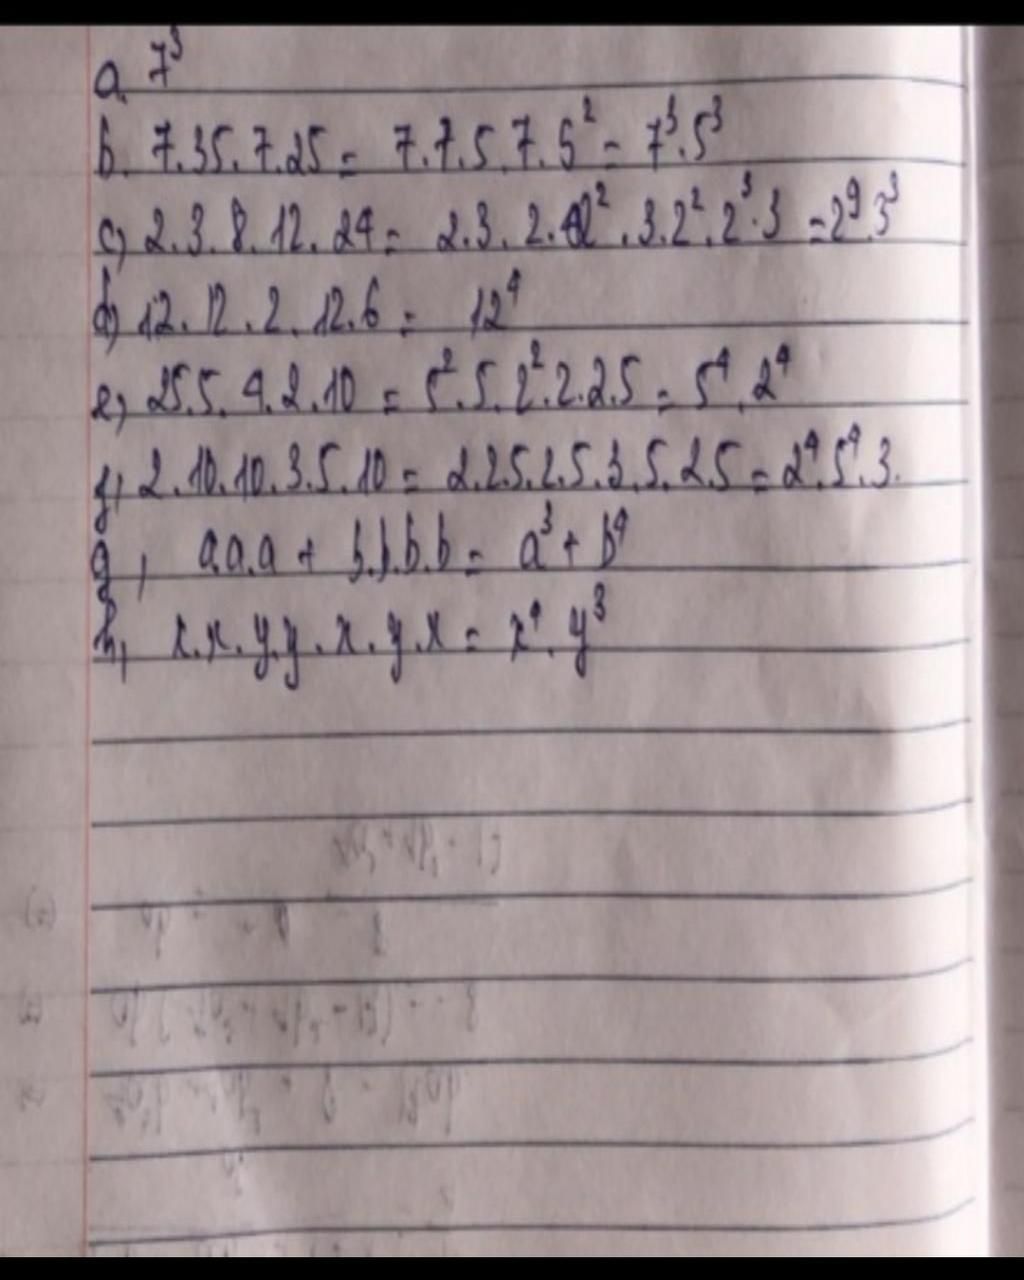 a. 7³
b. 7.35.7.25 = 7.7.5.7.5² = 7³.5³
c) 2.3.8.12.24 = 2.3.2.2².3.2².2³.3 = 2⁹.3³
d) 12.12.2.12.6 = 12⁴
e) 25.5.4.2.10 = 5².5.2².2.2.5 = 5⁴.2⁴
f, 2.10.10.3.5.10 = 2.2.5.2.5.3.5.2.5 = 2⁴.5⁴.3.
g, a.a.a + b.b.b.b = a³ + b⁴
h, x.x.y.y.x.y.x = x⁴.y³